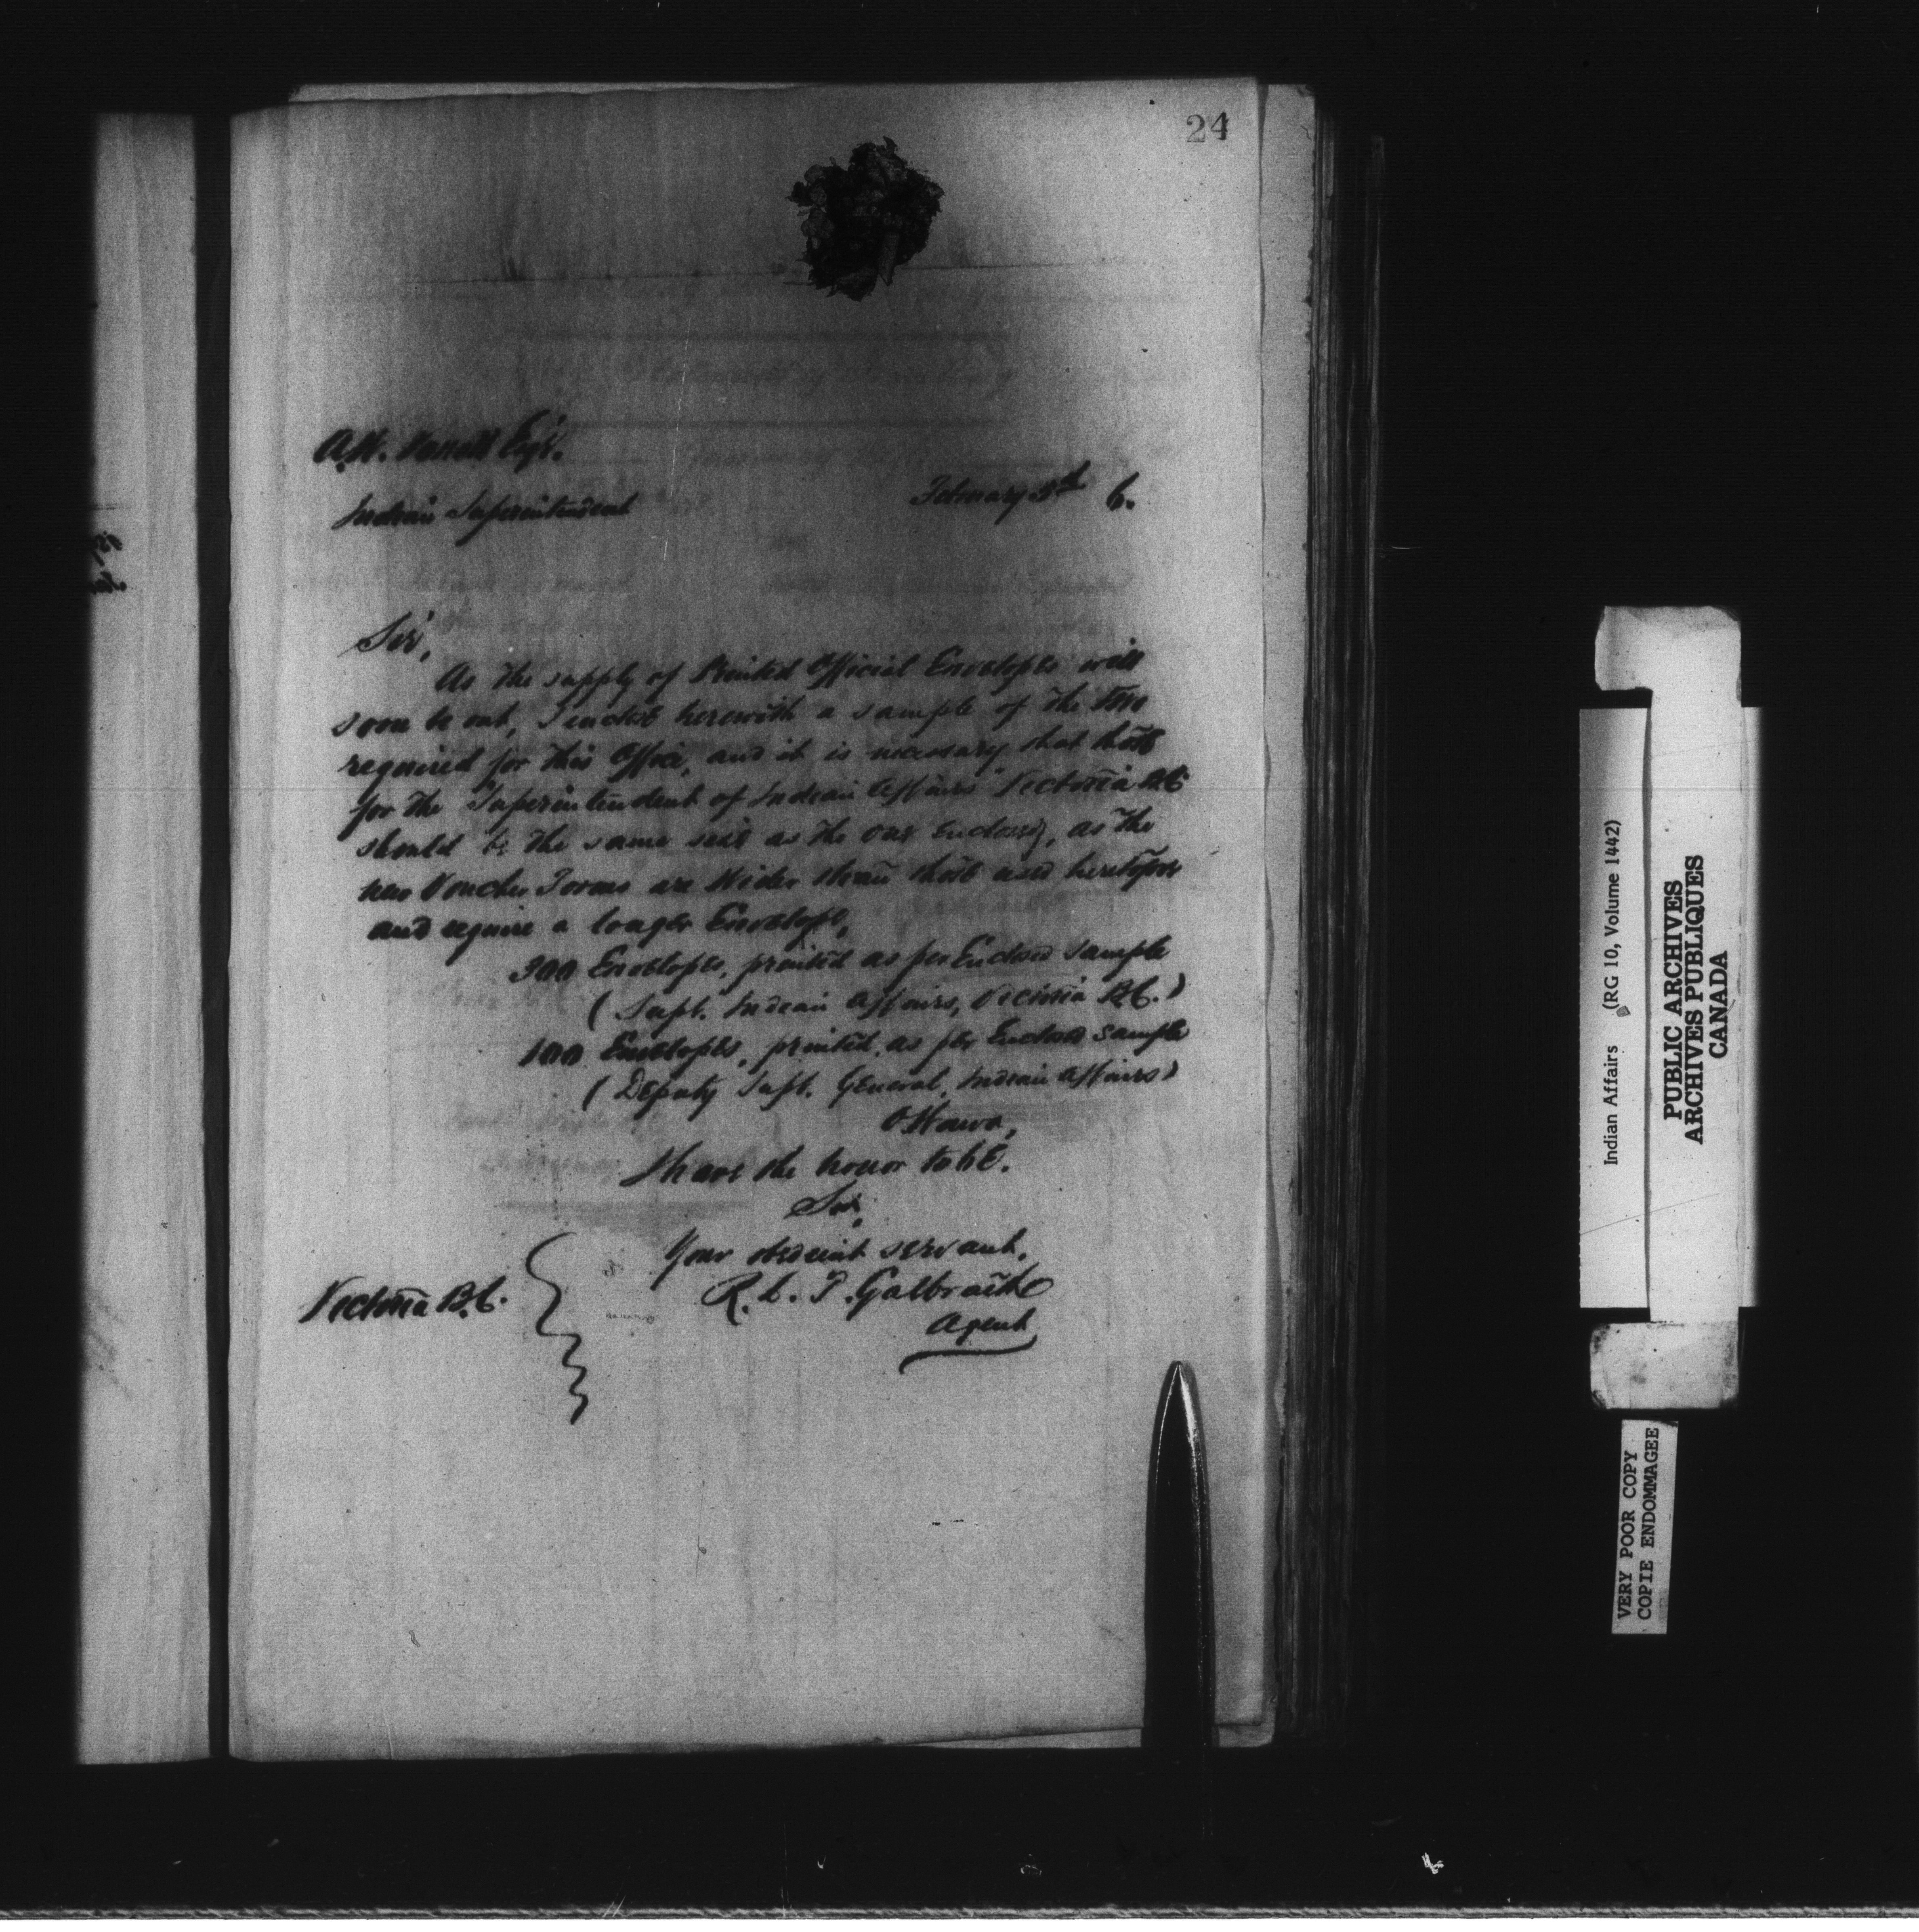 24
A.W. Vowell Esqr.
Indian Superintendent
February 5th 6.
Sir,
As the supply of Printed Official Envelopes will
soon be out, I enclose herewith a sample of the two
required for this Office, and it is necessary that those
for the "Superintendent of Indian Affairs" Victoria B.C.
should be the same size as the one Enclosed, as the
new Voucher Forms are Wider than those used heretofore
and require a longer Envelope,
300 Envelopes, printed as per Enclosed sample
(Supt. Indian Affairs, Victoria B.C.)
100 Envelopes, printed, as per Enclosed sample
(Deputy Supt. General, Indian Affairs)
Ottawa,
I have the honor to be.
Sir,
Your obedient servant.
R. L. T. Galbraith
Agent
Victoria B.C.
Indian Affairs (RG 10, Volume 1442)
PUBLIC ARCHIVES
ARCHIVES PUBLIQUES
CANADA
VERY POOR COPY
COPIE ENDOMMAGEE